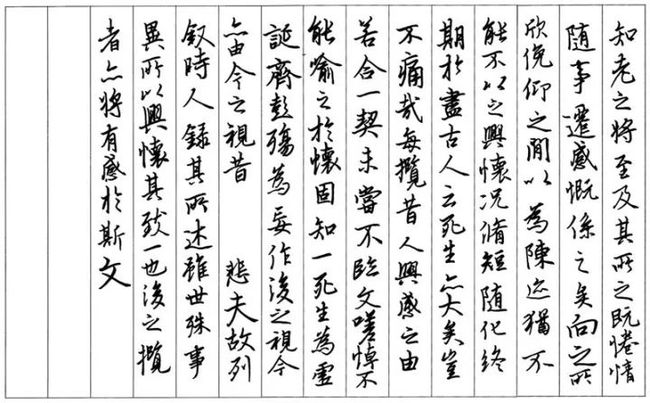 知老之将至及其所之既惓情
随事遷感慨係之矣向之所
欣俛仰之閒以為陳迹猶不
能不以之興懷況脩短随化終
期於盡古人云死生亦大矣豈
不痛哉每攬昔人興感之由
若合一契未嘗不臨文嗟悼不
能喻之於懷固知一死生為虛
誕齊彭殤為妄作後之視今
亦由今之視昔 悲夫故列
叙時人録其所述雖世殊事
異所以興懷其致一也後之攬
者亦将有感於斯文